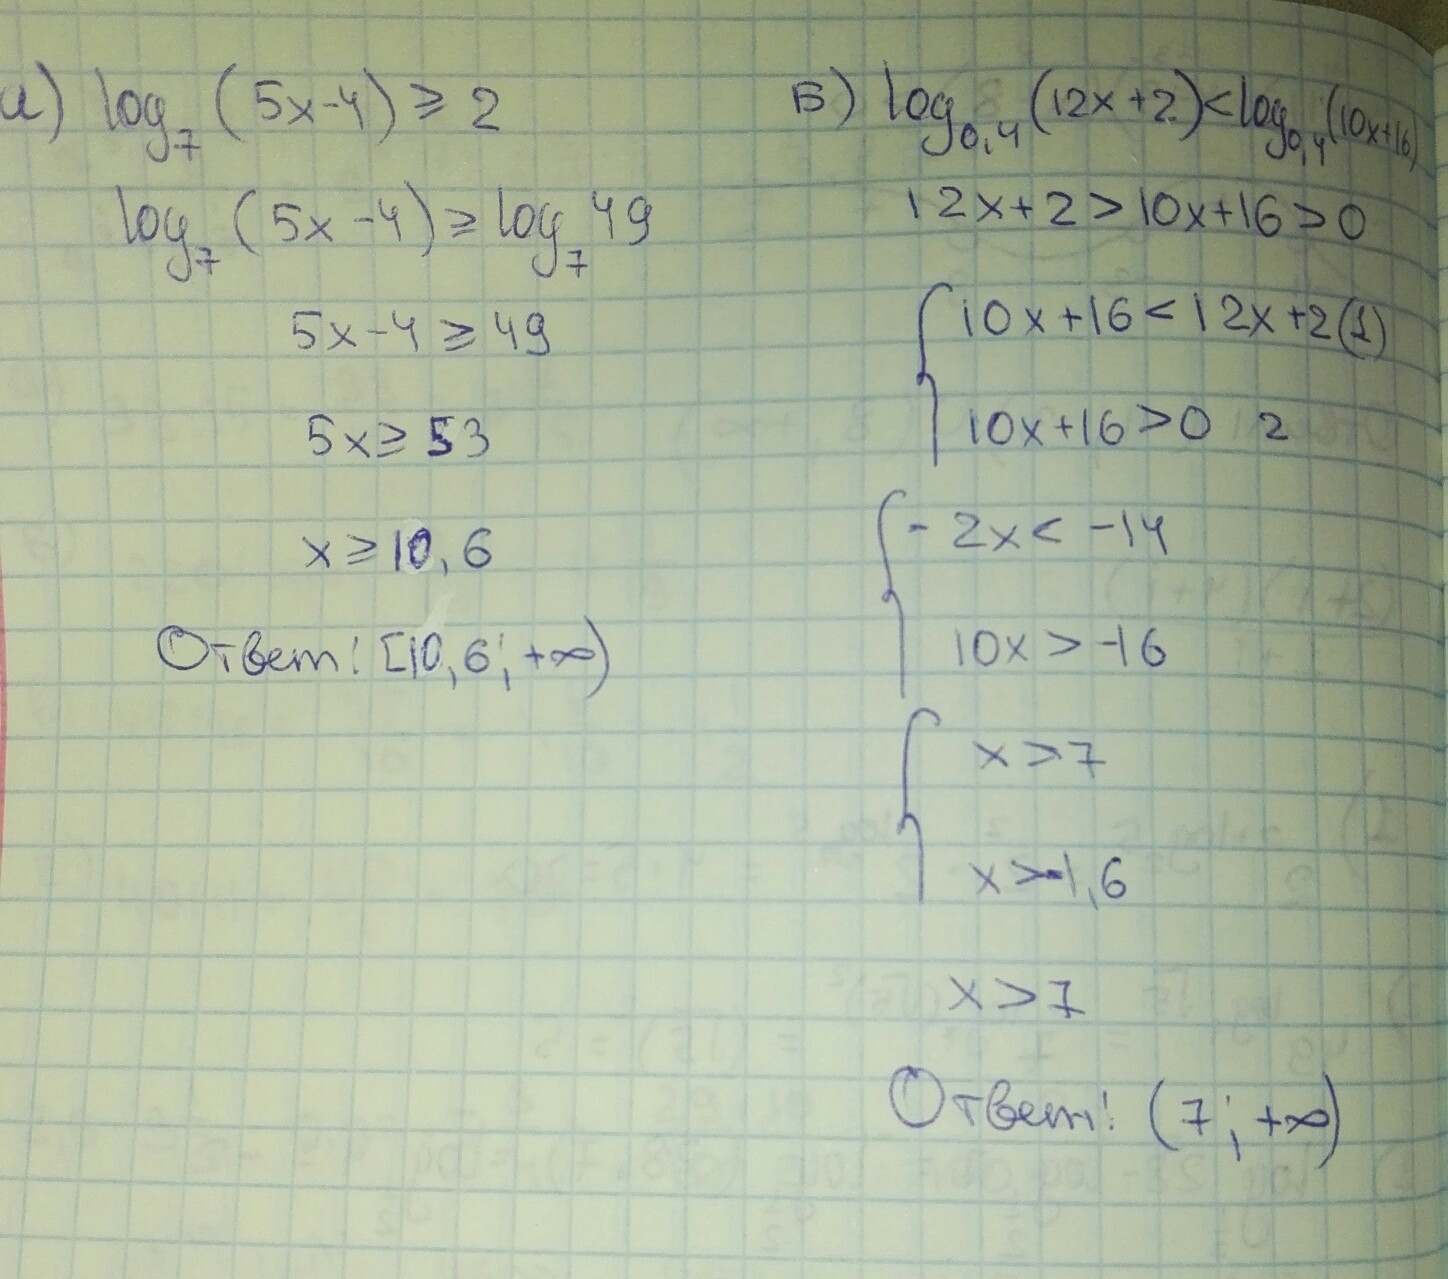 а) log₇(5x-4) ≥ 2
log₇(5x-4) ≥ log₇49
5x-4 ≥ 49
5x ≥ 53
x ≥ 10,6
Ответ: [10,6; +∞)
в) log₀,₄(12x+2) < log₀,₄(10x+16)
12x+2 > 10x+16 > 0
10x+16 < 12x+2 (1)
10x+16 > 0 2
-2x < -14
10x > -16
x > 7
x > -1,6
x > 7
Ответ: (7; +∞)